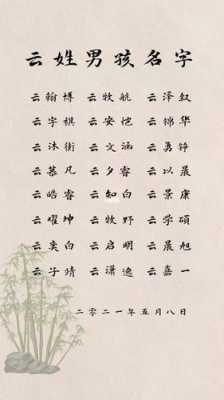 云姓男孩名字
云翰博 云牧航 云泽叙
云字棋 云安恺 云锦华
云沐衡 云文涵 云勇铮
云慕凡 云夕睿 云以晨
云皓睿 云知白 云景康
云曜坤 云牧野 云学硕
云奕白 云启明 云晨旭
云子靖 云潇逸 云嘉一
二零二一年五月八日